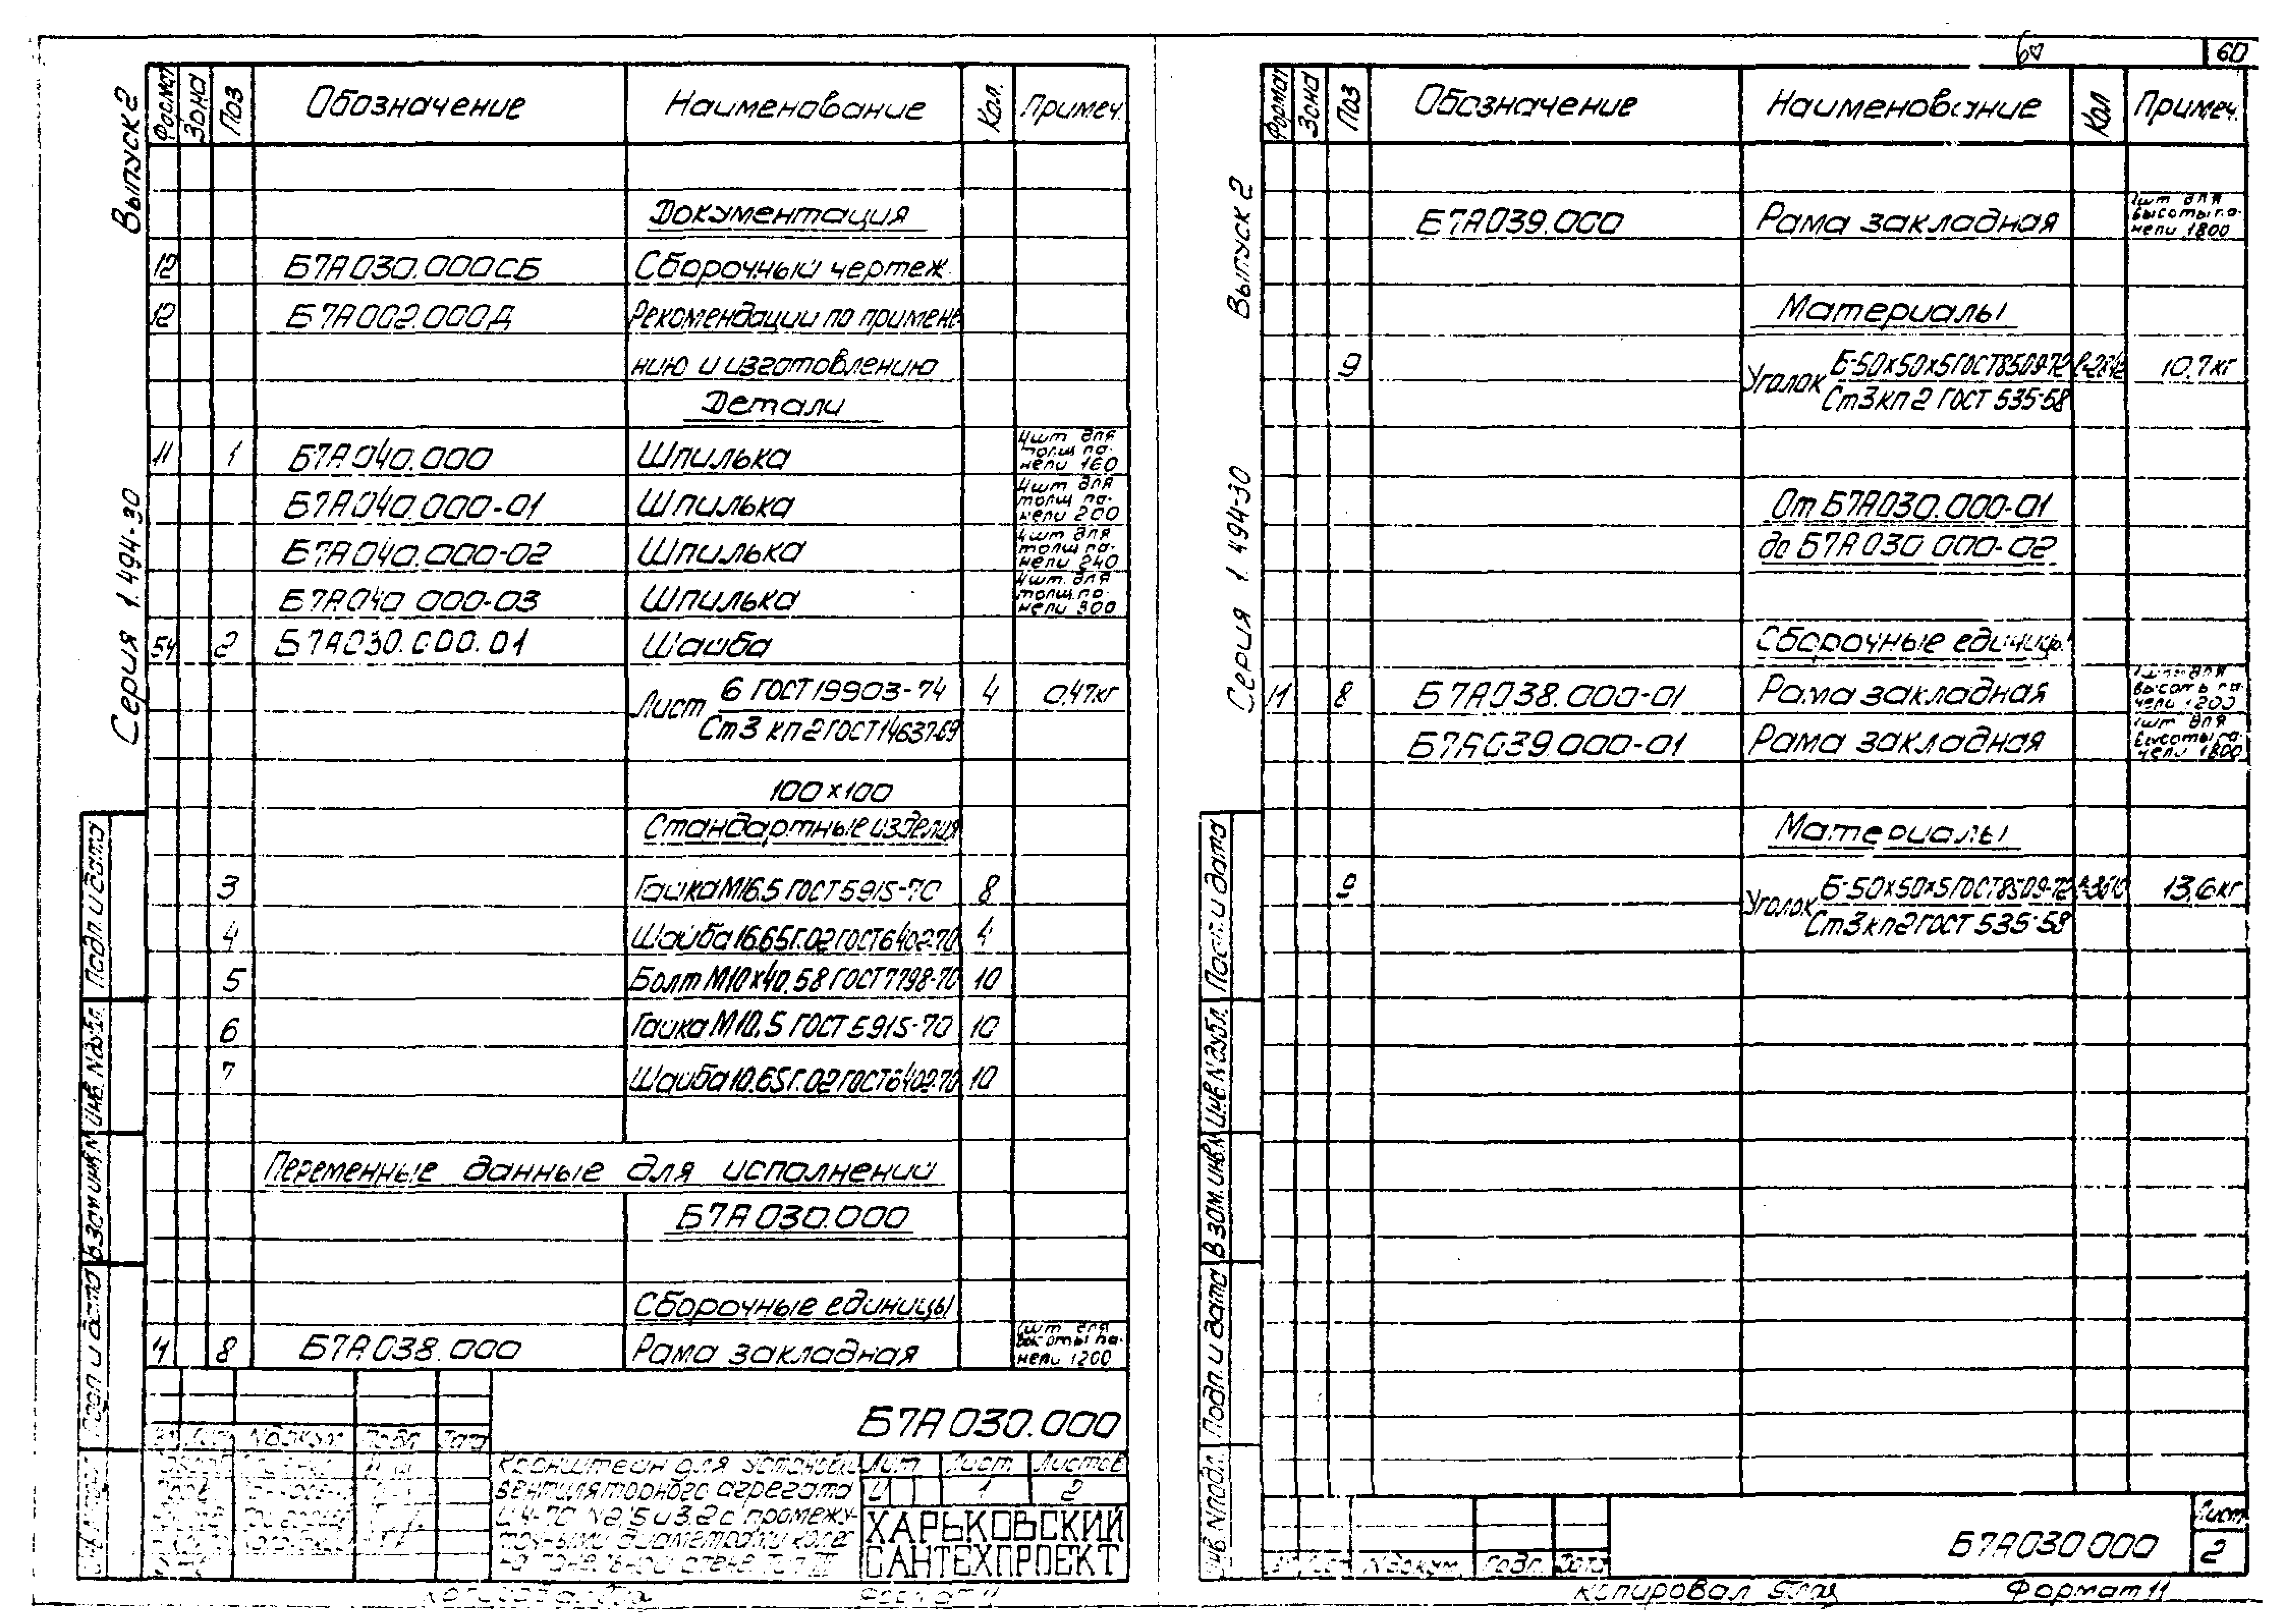 60
Выпуск 2
Серия 1.494-30
Формат Зона Поз Обозначение Наименование Кол. Примеч.
Документация
12 Б7А030.000СБ Сборочный чертеж
12 Б7А002.000Д Рекомендации по примене
нию и изготовлению
Детали
11 1 Б7А040.000 Шпилька 4шт для толщ па-нели 160
Б7А040.000-01 Шпилька 4шт для толщ па-нели 200
Б7А040.000-02 Шпилька 4шт для толщ па-нели 240
Б7А040 000-03 Шпилька 4шт. для толщ. па-нели 300
БЧ 2 Б7А030.000.01 Шайба
Лист 6 ГОСТ 19903-74 4 0,47кг
Ст3 кп2 ГОСТ 14637-69
100×100
Стандартные изделия
3 Гайка М16.5 ГОСТ 5915-70 8
4 Шайба 16.65Г.02 ГОСТ 6402-70 4
5 Болт М10×40.58 ГОСТ 7798-70 10
6 Гайка М10.5 ГОСТ 5915-70 10
7 Шайба 10.65Г.02 ГОСТ 6402-70 10
Переменные данные для исполнений
Б7А030.000
Сборочные единицы
11 8 Б7А038.000 Рама закладная 1шт для высоты па-нели 1200
Подп. и дата
Инв. № дубл.
Взам инв. №
Подп и дата
Б7А030.000
№ докум. Подп. Дата
Кронштейн для установки
вентиляторного агрегата
Ц4-70 №2,5 и 3,2 с промежу-
точными диаметрами коле
на панельной стене. Тип III
Лит Лист Листов
И 1 2
ХАРЬКОВСКИЙ
САНТЕХПРОЕКТ
Выпуск 2
Серия 1.494-30
Формат Зона Поз Обозначение Наименование Кол Примеч.
Б7А039.000 Рама закладная 1шт для высоты па-нели 1800
Материалы
9 Уголок Б-50×50×5 ГОСТ 8509-72 10,7кг
Ст3кп2 ГОСТ 535-58
От Б7А030.000-01
до Б7А030 000-02
Сборочные единицы
11 8 Б7А038.000-01 Рама закладная 1шт для высоты па-нели 1200
Б7А039.000-01 Рама закладная 1шт для высоты па-нели 1800
Материалы
9 Уголок Б-50×50×5 ГОСТ 8509-72 13,6кг
Ст3кп2 ГОСТ 535-58
Подп. и дата
Инв. № дубл.
Взам. инв. №
Подп. и дата
Инв. № подл.
№ докум. Подп. Дата
Б7А030 000
Лист
2
Копировал
Формат 11